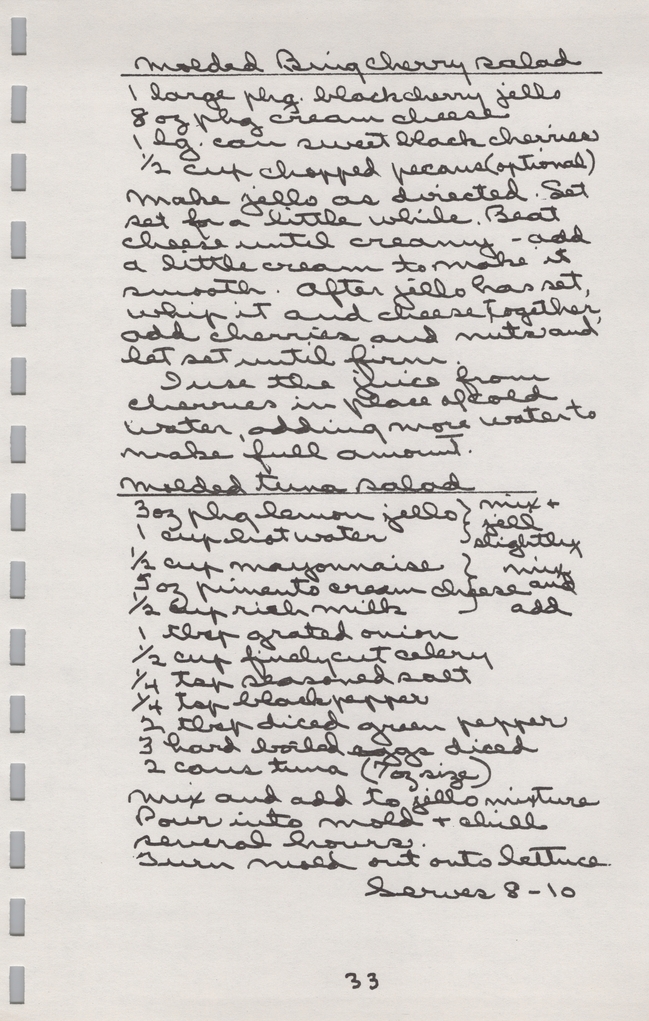 Molded Bing cherry salad
1 large pkg. blackcherry jello
8 oz pkg cream cheese
1 lg. can sweet black cherries
1/2 cup chopped pecans (optional)
Make jello as directed. Set
set for a little while. Beat
cheese until creamy - add
a little cream to make it
smooth. After jello has set,
whip it and cheese together,
add cherries and nuts and
let set until firm.
I use the juice from
cherries in place of cold
water, adding more water to
make full amount.
Molded tuna salad
3 oz pkg lemon jello } mix +
1 cup hot water } jell slightly
1/2 cup mayonnaise } mix
5 oz pimento cream cheese } and
1/2 cup rich milk } add
1 tbsp grated onion
1/2 cup finely cut celery
1/4 tsp seasoned salt
1/4 tsp black pepper
2 tbsp diced green pepper
3 hard boiled eggs diced
2 cans tuna (7 oz size)
mix and add to jello mixture
Pour into mold + chill
several hours.
Turn mold out onto lettuce.
Serves 8-10
33